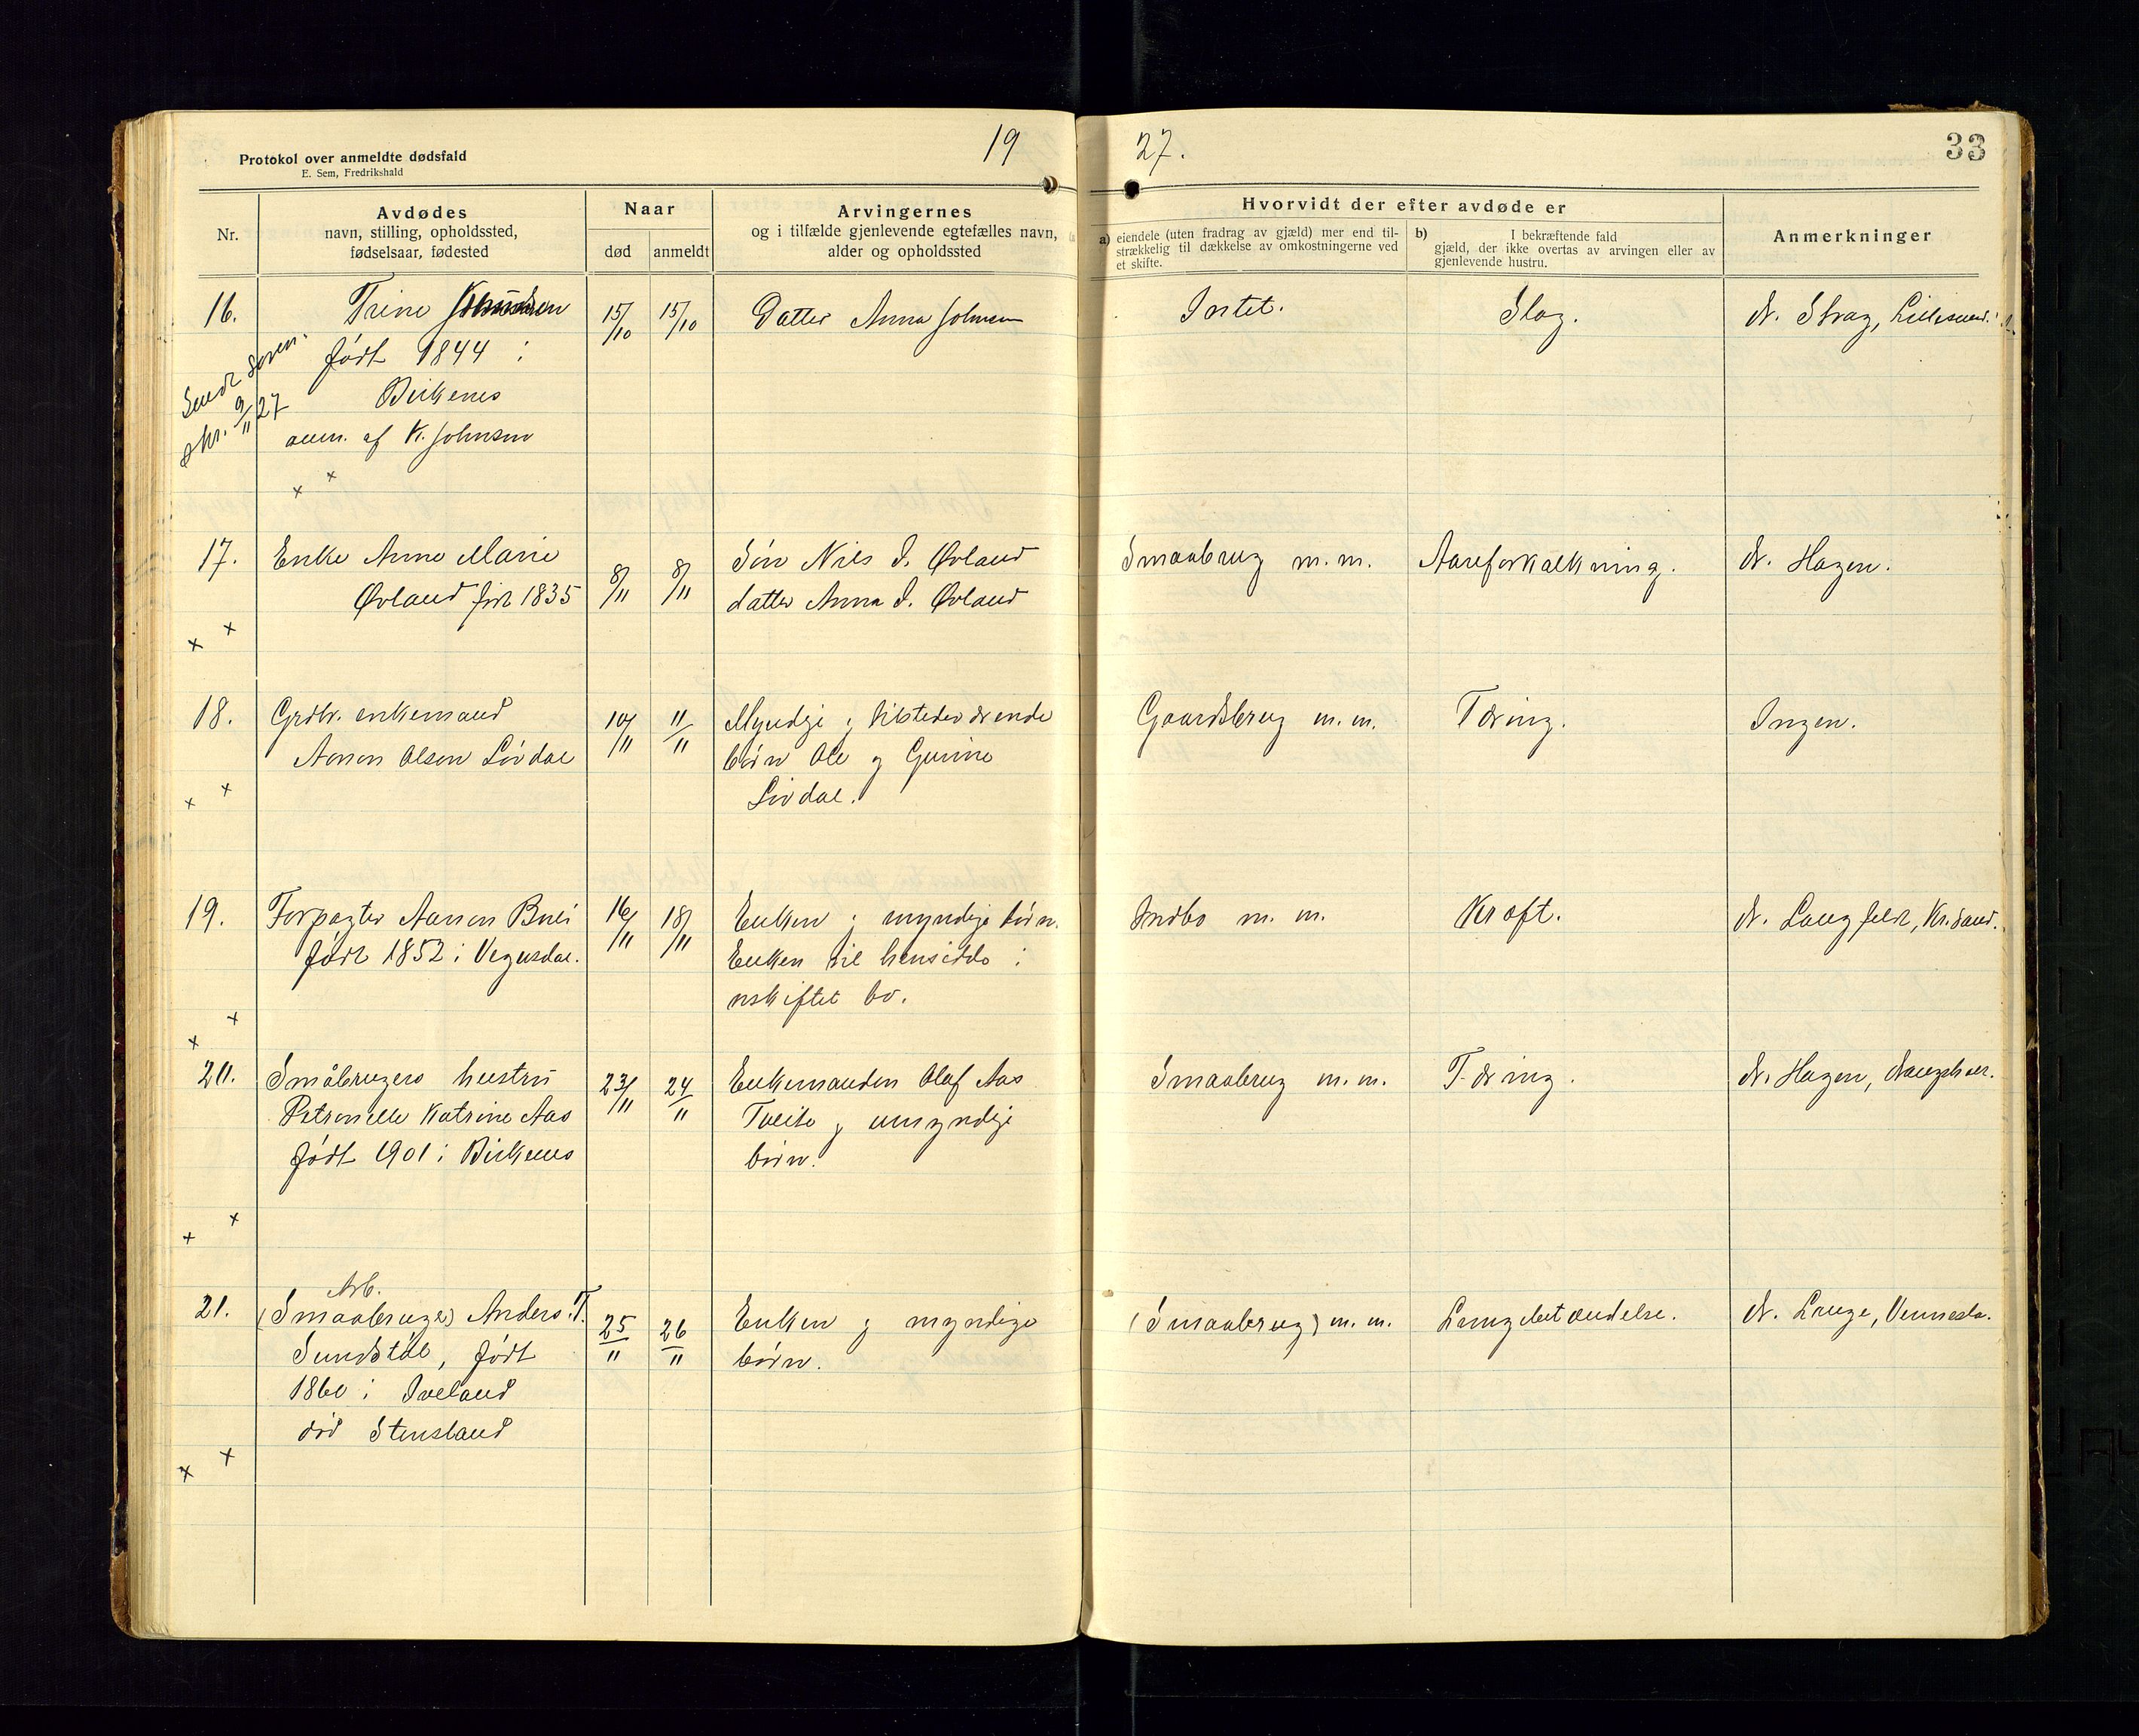 19 27.
33
Protokol over anmeldte dødsfald
E. Sem, Fredrikshald
Nr.
Avdødes
navn, stilling, opholdssted,
fødselsaar, fødested
Naar
død
anmeldt
Arvingernes
og i tilfælde gjenlevende egtefælles navn,
alder og opholdssted
Hvorvidt der efter avdøde er
a) eiendele (uten fradrag av gjæld) mer end til-
strækkelig til dækkelse av omkostningerne ved
et skifte.
b) I bekræftende fald
gjæld, der ikke overtas av arvingen eller av
gjenlevende hustru.
Anmerkninger
16. Trine
født 1844 i
Birkenes
anm. af K. Johnsen
Sendt soren-
skr. 9/11 27
15/10
15/10
Datter Anna Johnsen
Intet.
Slag.
dr. Stray, Lillesand.
17. Enke Anne Marie
Øvland født 1835
8/11
8/11
Søn Nils J. Øvland
datter Anna J. Øvland
Smaabrug m.m.
Aareforkalkning.
dr. Hagen.
18. Grdbr. enkemand
Aanon Olsen Løvdal
10/11
11/11
Myndige tilstedeværende
børn Ole og Gunine
Løvdal.
Gaardsbrug m.m.
Tæring.
Ingen.
19. Forpagter Aanon Buei
født 1852 i Vegusdal.
16/11
18/11
Enken og myndige børn.
Enken vil hensidde i
uskiftet bo.
Indbo m.m.
Kræft.
dr. Langfeldt, Kr.sand.
20. Småbrugers hustru
Petronelle Katrine Aas
født 1901 i Birkenes
23/11
24/11
Enkemanden Olaf Aas
Tveite og umyndige
børn.
Smaabrug m.m.
Tæring.
dr. Hagen,
21. Arb.
(Smaabruger) Anders T.
Sundstøl, født
1860 i Iveland
død Stensland
25/11
26/11
Enken og myndige
børn.
(Smaabrug) m.m.
Lungebetændelse.
dr. Lauge, Vennesla.